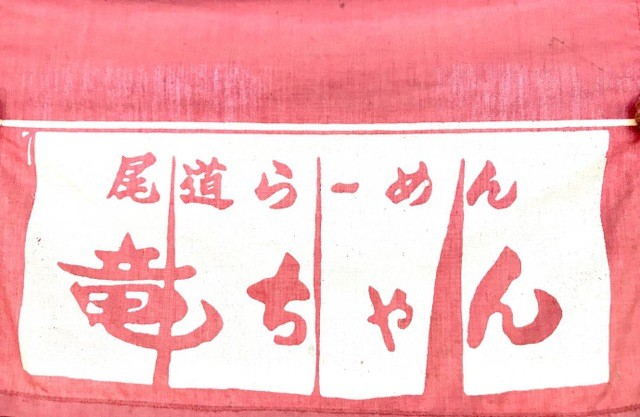 尾道らーめん
竜ちゃん